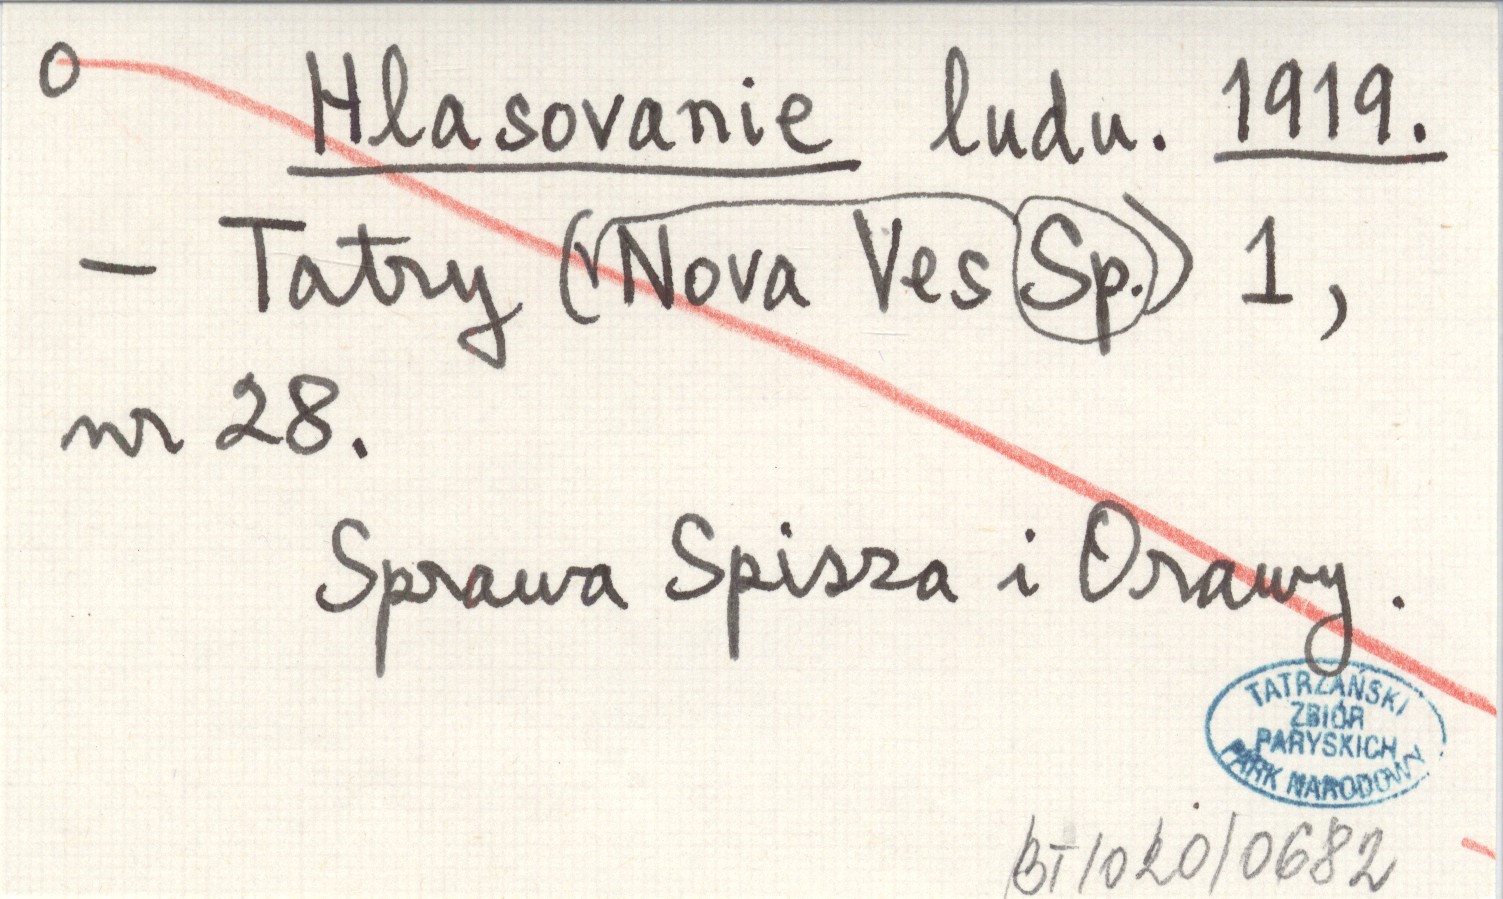 O
Hlasovanie ludu. 1919.
– Tatry (Nova Ves Sp.) 1,
nr 28.
Sprawa Spisza i Orawy.
TATRZAŃSKI
ZBIÓR
PARYSKICH
PARK NARODOWY
BT/020/0682